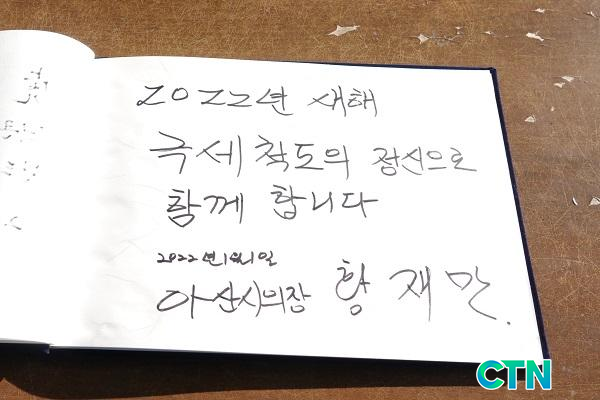 2022년 새해
극세척도의 정신으로
함께 합니다
2022년 1월 1일
아산시의장 황재만.
CTN